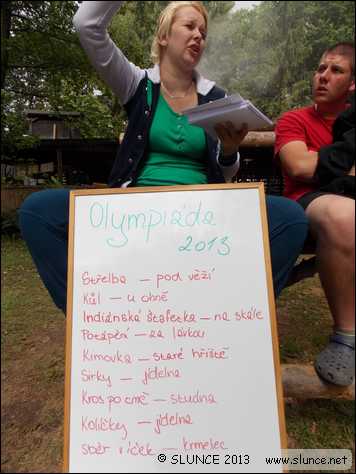 Olympiáda
2013
Střelba – pod věží
Kůl – u ohně
Indiánská štafetka – na skále
Potápění – za lávkou
Kimovka – staré hřiště
Sirky – jídelna
Kros po tmě – studna
Kolíčky – jídelna
sběr víček – krmelec
© SLUNCE 2013 www.slunce.net